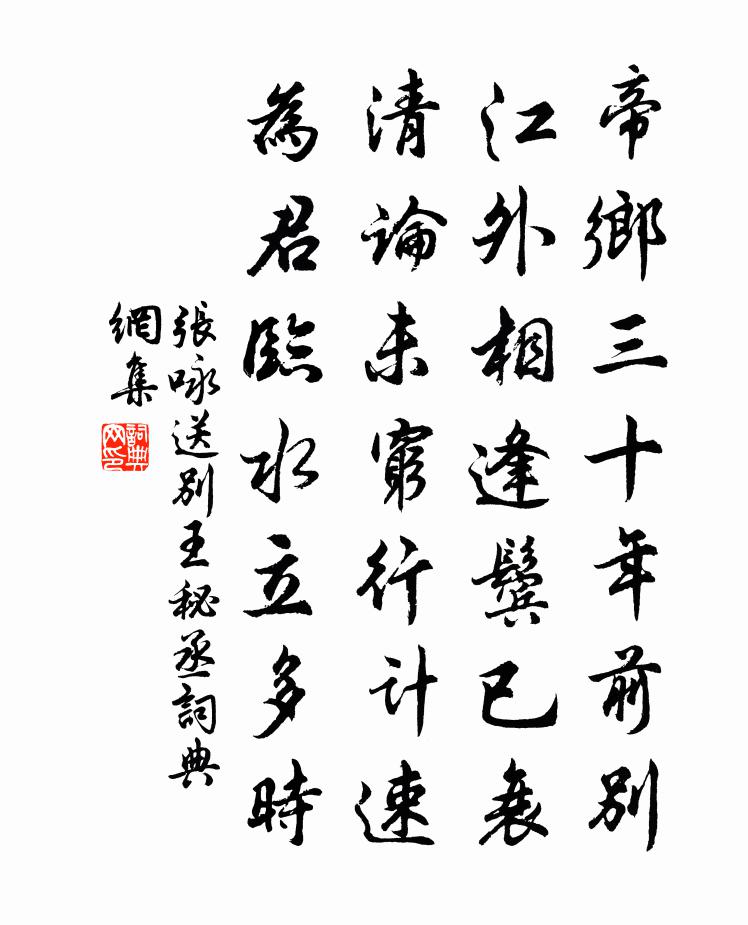 帝鄉三十年前別
江外相逢鬢已衰
清論未窮行計速
為君臨水立多時
張咏送別王秘丞詞典
網集
詞典
网印